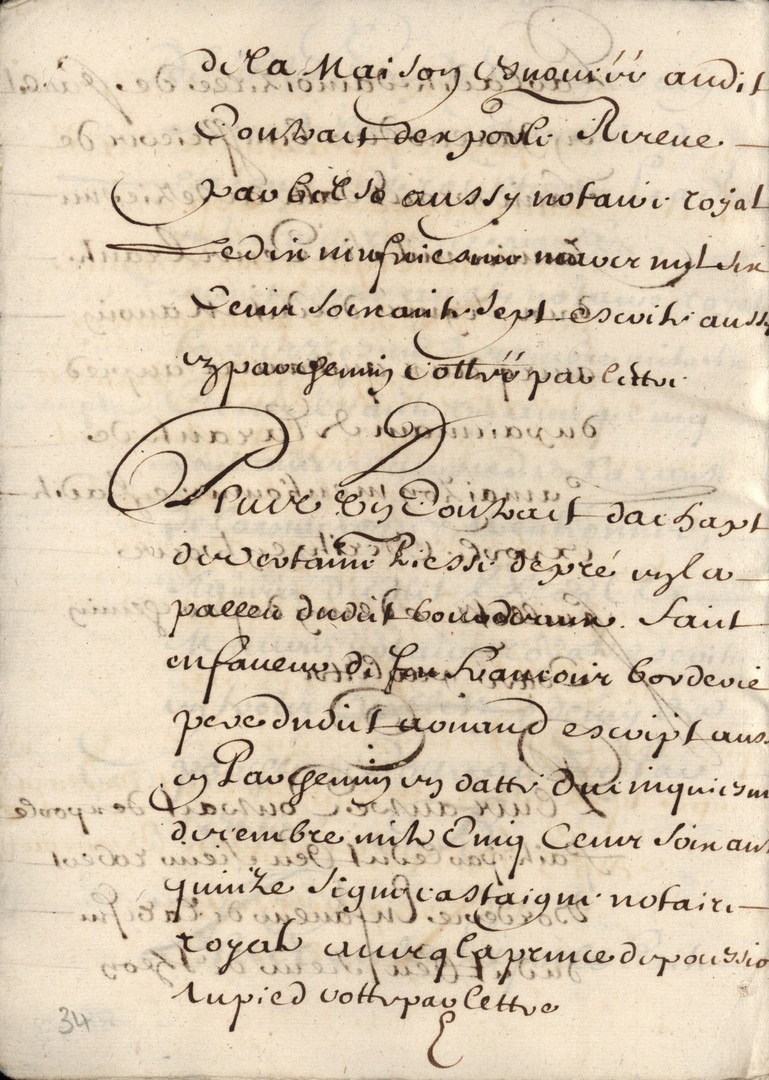 de la Maison esnoncéé audit
Contrait denporle Rivene
par bolse aussy notaire royal
Ledix neufviesme mil six
Cens soixante sept escrite auss
en parchemin cottéé par lettre
Plus un Contrait dachapt
de certaine Piesse de pré en la
palleu dudit bourdeaux. fait
en faveur de feu francois borderie
pere dudict arnaud escript auss
en Parchemin en datte du cinquiesme
decembre mil Cinq Cens soixant
quinze signé castaigne notaire
royal avec la prince de poussio
au pied cotte par lettre
E
34